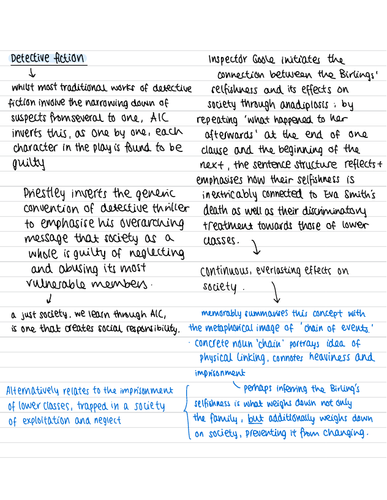 Detective fiction
whilst most traditional works of detective
fiction involve the narrowing down of
suspects from several to one, AIC
inverts this, as one by one, each
character in the play is found to be
guilty
Priestley inverts the generic
convention of detective thriller
to emphasise his overarching
message that society as a
whole is guilty of neglecting
and abusing its most
vulnerable members.
a just society, we learn through AIC,
is one that creates social responsibility.
Alternatively relates to the imprisonment
of lower classes, trapped in a society
of exploitation and neglect
Inspector Goole initiates the
connection between the Birlings'
selfishness and its effects on
society through anadiplosis; by
repeating 'what happened to her
afterwards' at the end of one
clause and the beginning of the
next, the sentence structure reflects +
emphasises how their selfishness is
inextricably connected to Eva Smith's
death as well as their discriminatory
treatment towards those of lower
classes.
continuous, everlasting effect on
society.
memorably summarises this concept with
the metaphorical image of 'chain of events'
· concrete noun 'chain' portrays idea of
physical linking, connotes heaviness and
imprisonment
perhaps inferring the Birling's
selfishness is what weighs down not only
the family, but additionally weighs down
on society, preventing it from changing.